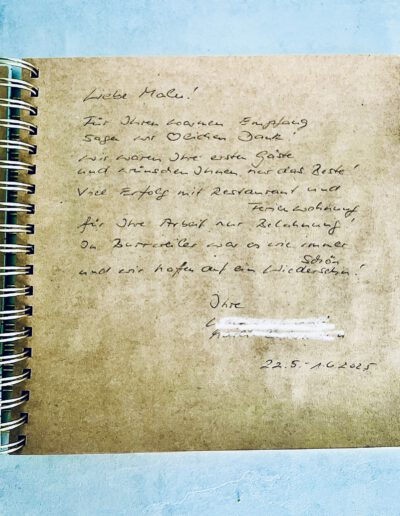 Liebe Malu!
Für Ihren warmen Empfang
Sagen wir ♡lichen Dank!
Wir waren Ihre ersten Gäste
und wünschen Ihnen nur das Beste!
Viel Erfolg mit Restaurant und
Ferienwohnung
für Ihre Arbeit nur Belohnung!
In Burrweiler war es wie immer
Schön
und wir hofen auf ein Wiedersehn!
Ihre
22.5.-1.6.2025